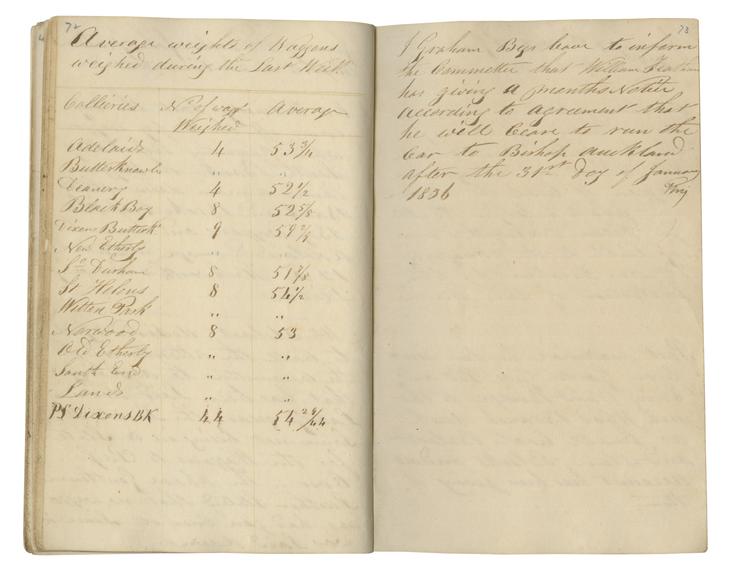 72
Average weights of Waggons
weighed during the Last Week
Collieries No of wagg Average
Weighed
Adelaide 4 53 3/4
Butterknowle " "
Deanery 4 52 1/2
Black Boy 8 52 5/8
Dixons Butterk 9
New Etherly
So Durham 8
St Helens 8 54 1/2
Witton Park " "
Norwood 8 53
Old Etherly " "
South End " "
Lands " "
Dixons BK 44 54 28/44
73
J Graham Begs leave to inform
the Committee that William
has giving a months Notice
according to agreement that
he will Ceare to run the
Car to Bishop Auckland
after the 31st Day of January
1836